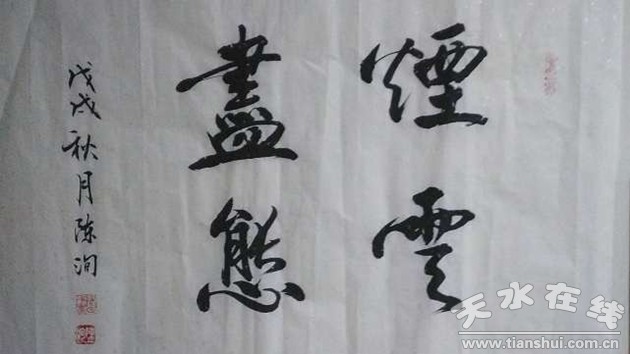 煙雲
盡態
戊戌秋月陈洵
天水在线
www.tianshui.com.cn